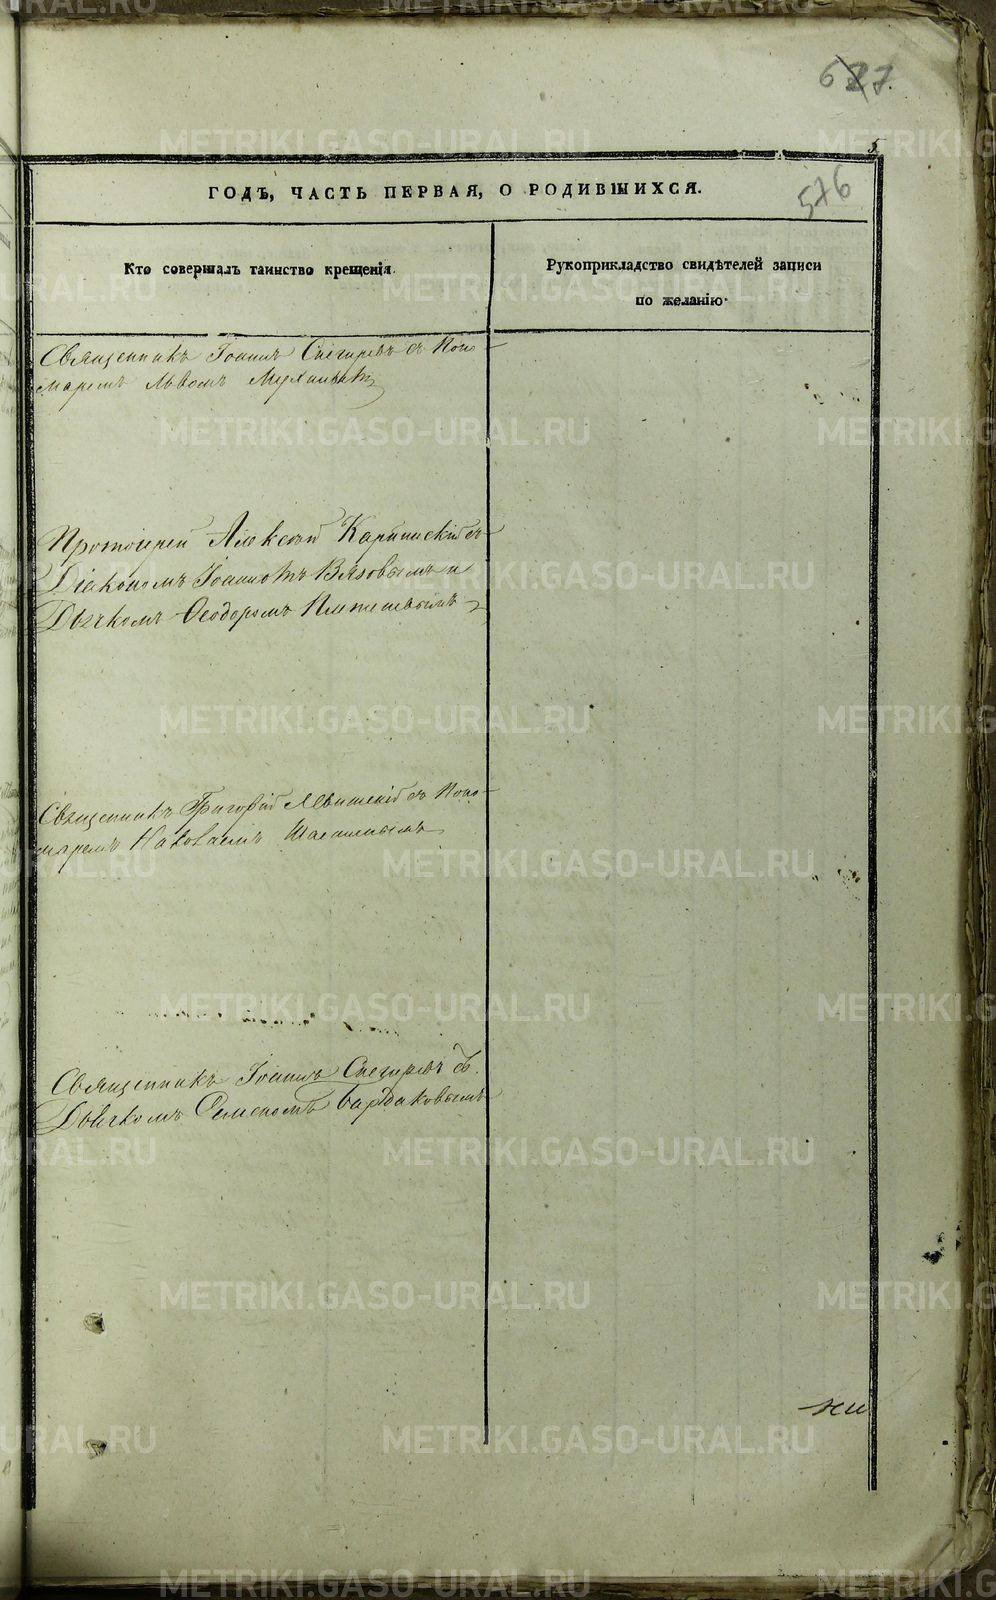 627
5
576
ГОДЪ, ЧАСТЬ ПЕРВАЯ, О РОДИВШИХСЯ.
Кто совершалъ таинство крещенія.
Рукоприкладство свидѣтелей записи
по желанію.
Священникъ Іоаннъ Снегиревъ съ Поно-
маремъ Львомъ
Протоіерей Алексѣй Карпинскій съ
Діакономъ Іоанномъ Вязовымъ и
Дьячкомъ Ѳеодоромъ
Священникъ Григорій съ Поно-
маремъ
Священникъ Іоаннъ Снегиревъ съ
Дьячкомъ Семеномъ Бардаковымъ
METRIKI.GASO-URAL.RU